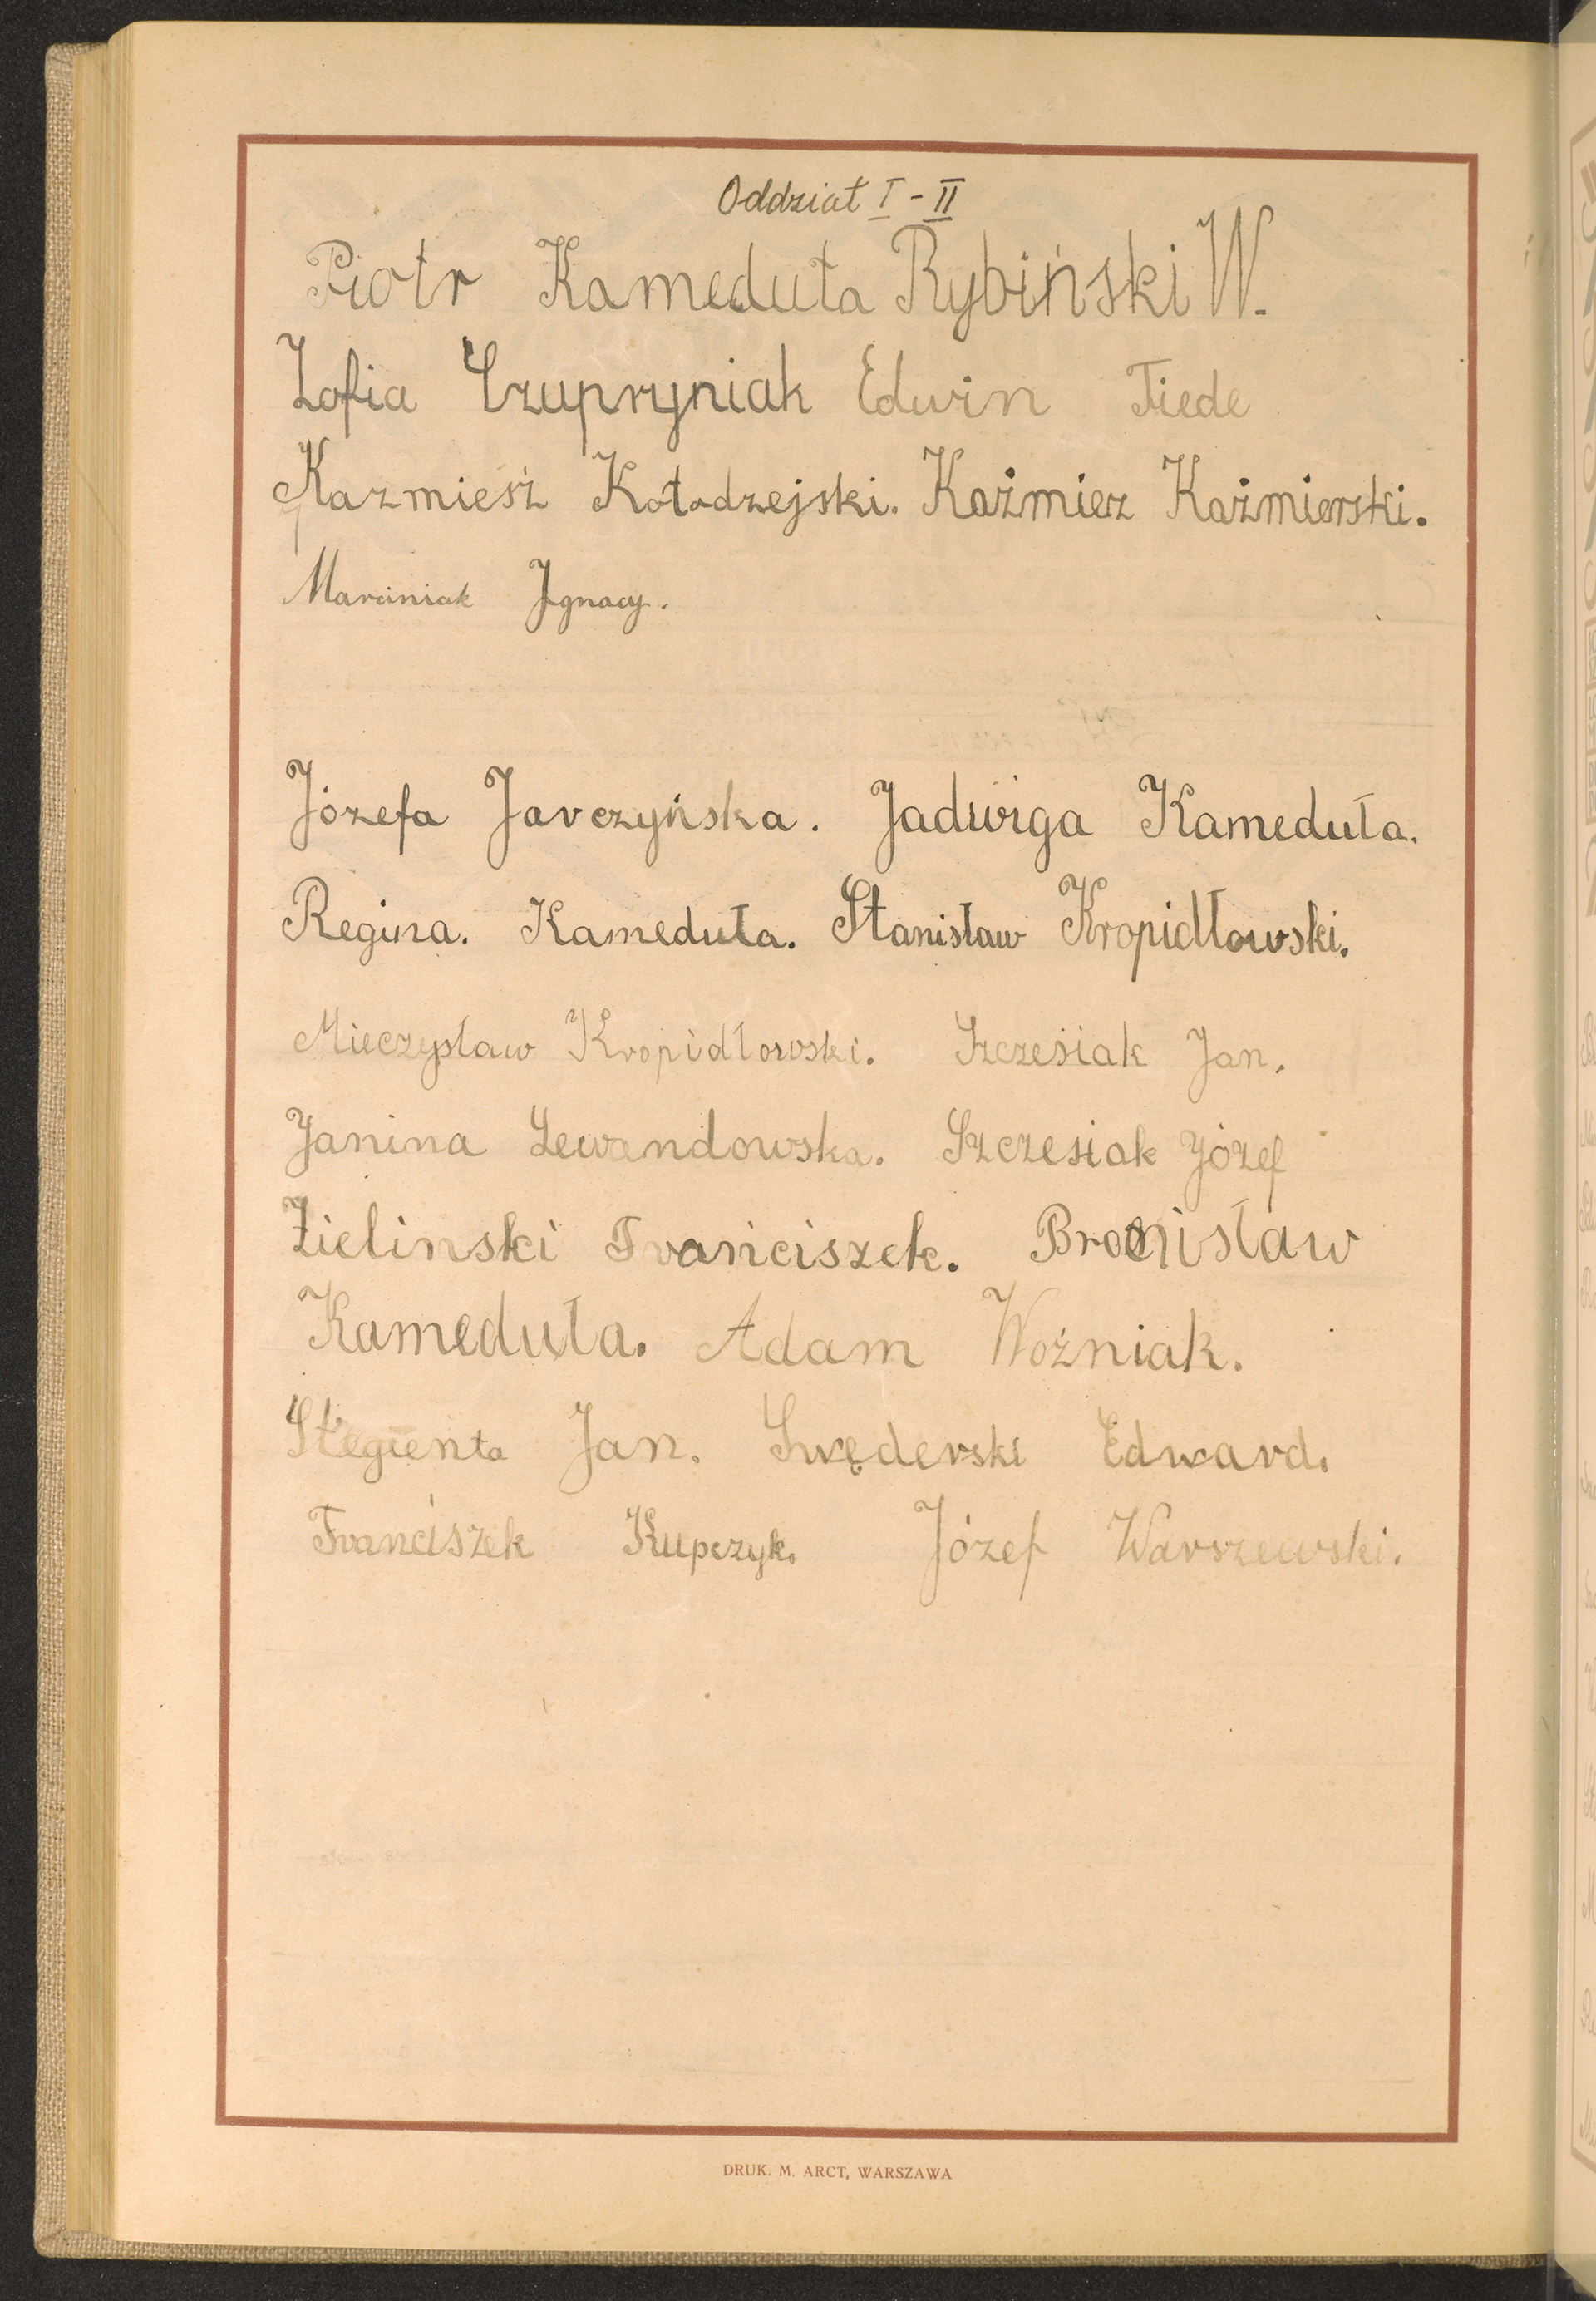 Oddział I - II
Piotr Kameduła Rybiński W.
Zofia Czupryniak Edwin Tiede
Kazmieśż Kołodzejski. Kaźmierz Kaźmierski.
Marciniak Ignacy.
Józefa Jarczyńska. Jadwiga Kameduła.
Regina. Kameduła. Stanisław Kropidłowski.
Mieczysław Kropidłowski. Szczesiak Jan.
Janina Lewandowska. Szczesiak Józef
Zielinski Franciszek. Bronisław
Kameduła. Adam Woźniak.
Stegienta Jan. Swęderski Edward.
Franciszek Kupczyk. Józef Warszewski.
DRUK. M. ARCT, WARSZAWA